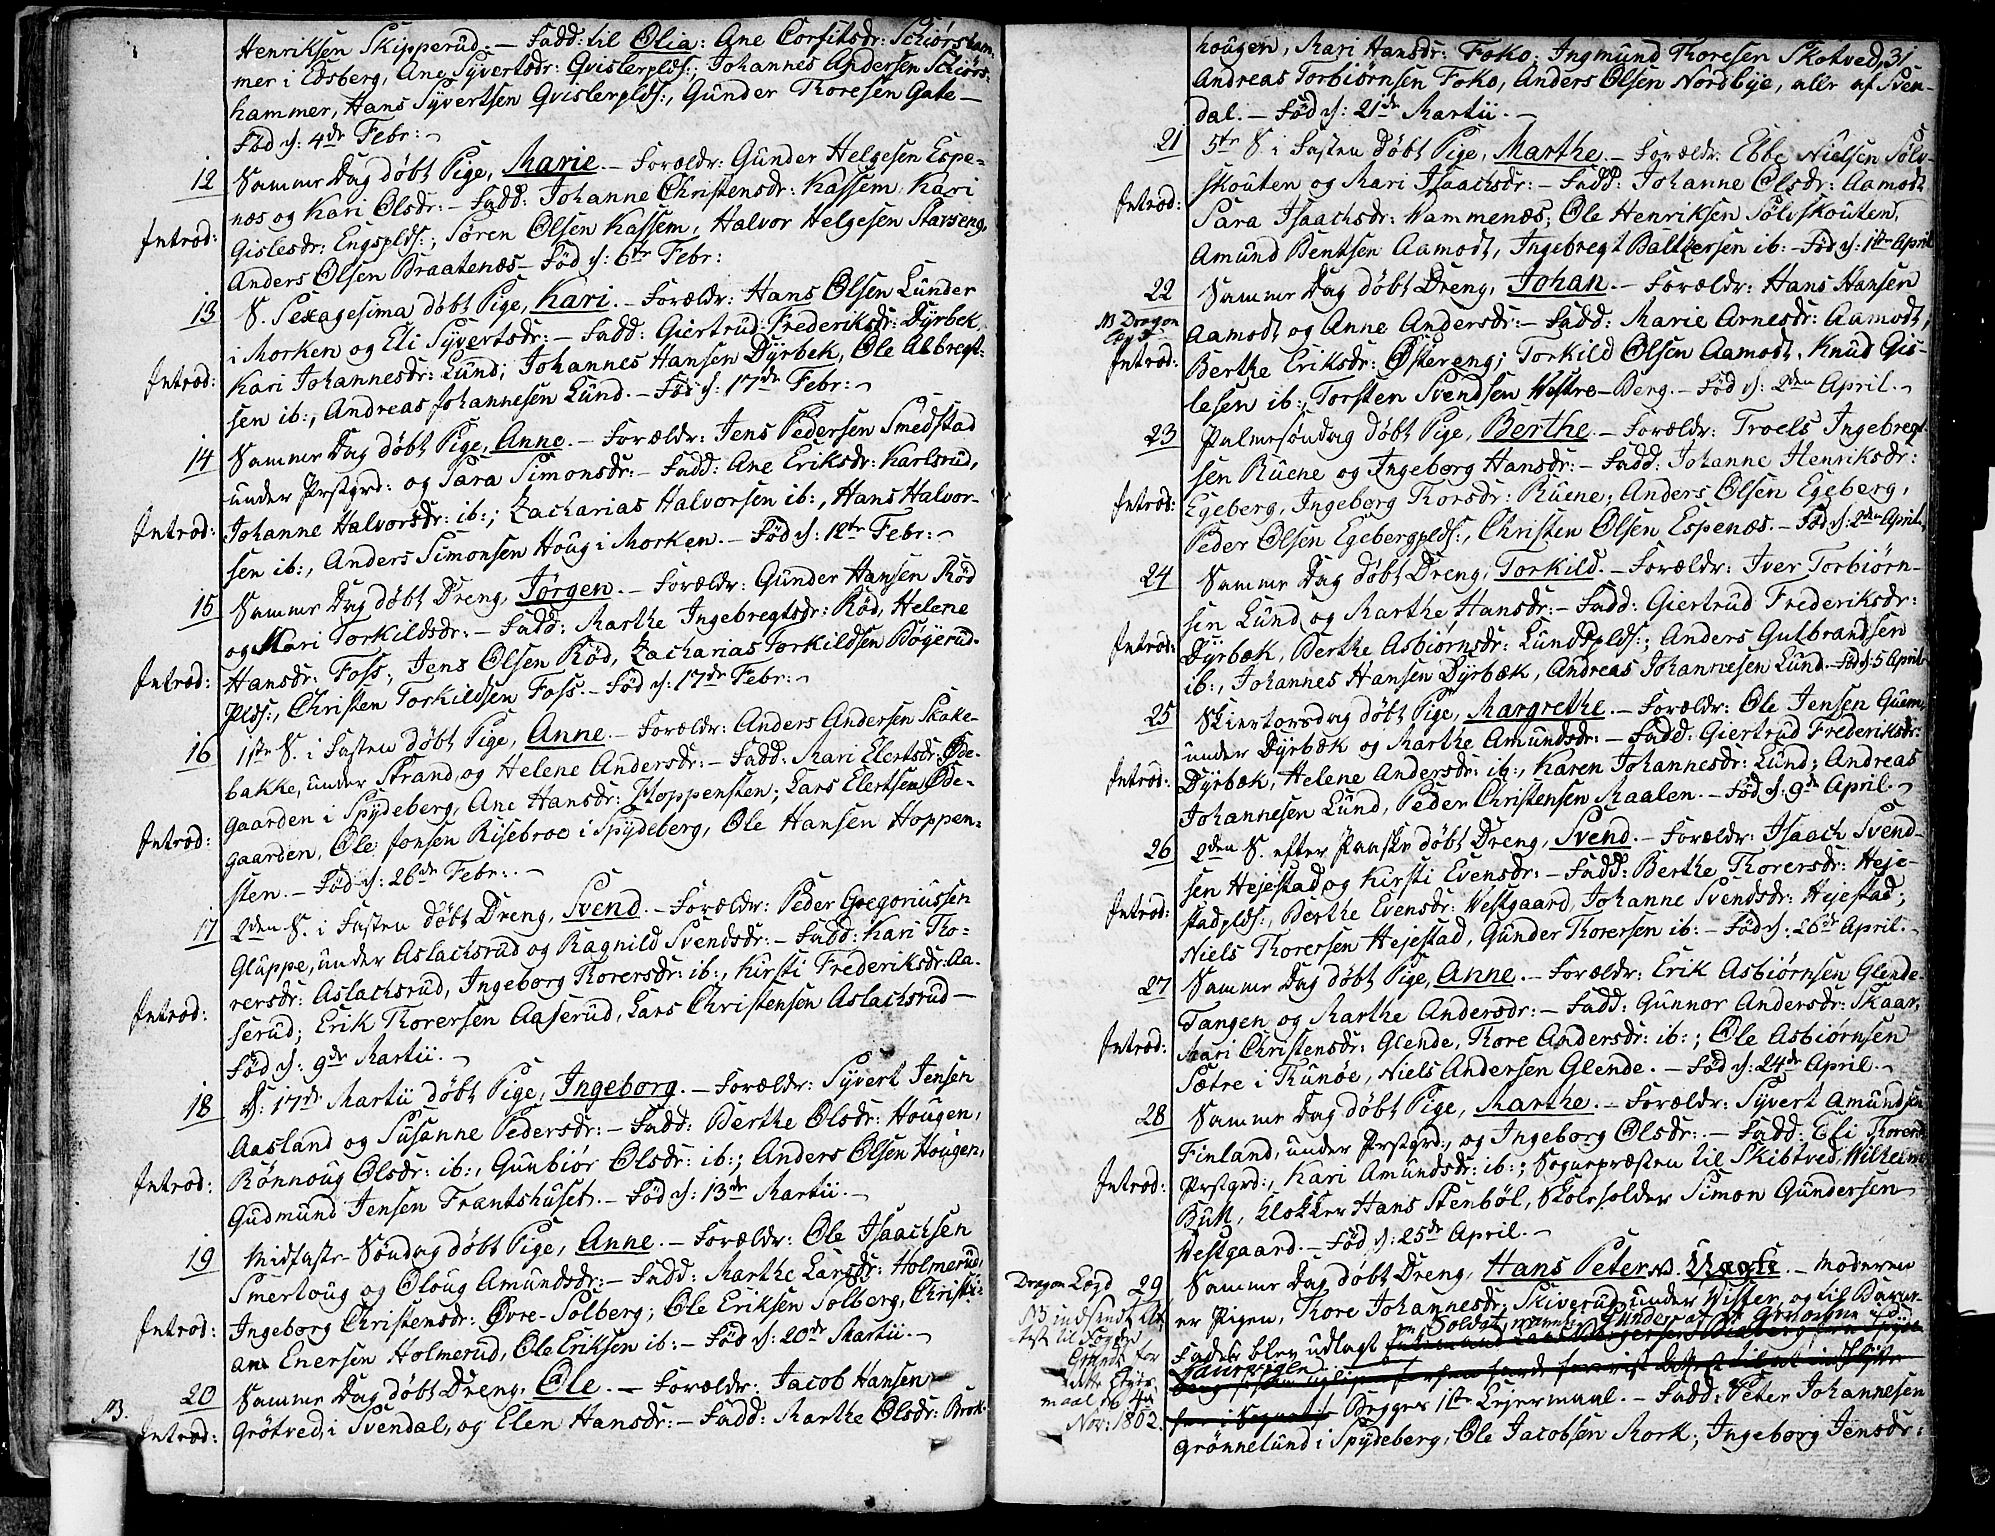 Henriksen Skipperud. – Fadd: til Olia: Ane Corfitsdr: Schiørsham-
mer i Edsberg, Ane Syvertsdr: Qvislerplds:, Johannes Andersen Schiørs-
hammer, Hans Syvertsen Qvislerplds:, Gunder Thoresen Gate –
Fød d: 4de Febr: –
12 Samme Dag døbt Pige, Marie. – Forældr: Gunder Helgesen Espe-
næs og Kari Olsdr: – Fadd: Johanne Christensdr: Kassem, Kari
Introd: Gislesdr: Engsplds:, Søren Olsen Kassem, Halvor Helgesen Starseng,
Anders Olsen Braatenæs – Fød d: 6te Febr:
13 S. Sexagesima døbt Pige, Kari. – Forældr: Hans Olsen Lunder
i Morken og Eli Syvertsdr: – Fadd: Giertrud Frederiksdr: Dyrbek,
Introd: Kari Johannesdr: Lund; Johannes Hansen Dyrbek, Ole Albregt-
sen ib:, Andreas Johannesen Lund. – Fød d: 17de Febr: –
14 Samme Dag døbt Pige, Anne. – Forældr: Jens Pedersen Smedstad
under Prstgrd: og Sara Simonsdr: – Fadd: Ane Eriksdr: Karlsrud,
Introd: Johanne Halvorsdr: ib:; Zacharias Halvorsen ib:, Hans Halvor-
sen ib:, Anders Simonsen Houg i Morken. – Fød d: 12te Febr: –
15 Samme Dag døbt Dreng, Jørgen. – Forældr: Gunder Hansen Rød
og Mari Torkildsdr: – Fadd: Marthe Ingebregtsdr: Rød, Helene
Introd: Hansdr: Foss, Jens Olsen Rød, Zacharias Torkildsen Bøyerud-
plds:, Christen Torkildsen Foss. – Fød d: 17de Febr: –
16 1ste S. i Fasten døbt Pige, Anne. – Forældr: Anders Andersen Skake-
bakke, under Strand, og Helene Andersdr: – Fadd: Mari Elertsdr: Øde-
gaarden i Spydeberg, Ane Hansdr: Hoppensten; Lars Elertsen Øde-
Introd: gaarden, Ole Jonsen Risebroe i Spydeberg, Ole Hansen Hoppen-
sten. – Fød d: 26de Febr: –
17 2den S. i Fasten døbt Dreng, Svend. – Forældr: Peder Gregoriussen
Gluppe, under Aslachsrud og Ragnild Svendsdr: – Fadd: Kari Tho-
rersdr: Aslachsrud, Ingeborg Thorersdr: ib:, Kirsti Frederiksdr: Aa-
Introd: serud; Erik Thorersen Aaserud, Lars Christensen Aslachsrud –
Fød d: 9de Martii. –
18 D: 17de Martii døbt Pige, Ingeborg. – Forældr: Syvert Jensen
Aasland og Susanne Pedersdr: – Fadd: Berthe Olsdr: Hougen,
Introd: Rønnoug Olsdr: ib:, Gunbiør Olsdr: ib:; Anders Olsen Hougen,
Gudmund Jensen Frantshuset. – Fød d: 13de Martii. –
19 Midfaste Søndag døbt Pige, Anne. – Forældr: Ole Isaachsen
Smertoug og Oloug Amundsdr: – Fadd: Marthe Larsdr: Holmerud,
Introd: Ingeborg Christensdr: Øvre-Solberg; Ole Eriksen Solberg, Christi-
an Enersen Holmerud, Ole Eriksen ib: – Fød d: 20de Martii. –
20 Samme Dag døbt Dreng, Ole. – Forældr: Jacob Hansen
Introd: Grøtved, i Svendal, og Elen Hansdr: – Fadd: Marthe Olsdr: Brek-
31
hougen, Mari Hansdr: Foko; Ingmund Thoresen Skotved,
Andreas Torbiørnsen Foko, Anders Olsen Nordbye, alle af Sven-
dal. – Fød d: 21de Martii. –
21 5te S. i Fasten døbt Pige, Marthe. – Forældr: Ebbe Nielsen Sølv-
skouten og Mari Isaachsdr: – Fadd: Johanne Olsdr: Aamodt,
Introd: Sara Isaachsdr: Vammenæs; Ole Henriksen Sølvskouten,
Amund Bentsen Aamodt, Ingebregt Baltzersen ib: – Fød d: 1ste April
22 Samme Dag døbt Dreng, Johan. – Forældr: Hans Hansen
Aamodt og Anne Andersdr: – Fadd: Marie Arnesdr: Aamodt,
Introd: Berthe Eriksdr: Østereng; Torkild Olsen Aamodt, Knud Gis-
lesen ib:, Torsten Svendsen Vestre-Berg. – Fød d: 2den April. –
23 Palmesøndag døbt Pige, Berthe. – Forældr: Troels Ingebregt-
sen Ruene og Ingeborg Hansdr: – Fadd: Johanne Henriksdr:
Introd: Egeberg, Ingeborg Thorsdr: Ruene; Anders Olsen Egeberg,
Peder Olsen Egebergplds:, Christen Olsen Espenæs. – Fød d: 2den April,
24 Samme Dag døbt Dreng, Torkild. – Forældr: Iver Torbiørn-
sen Lund og Marthe Hansdr: – Fadd: Giertrud Frederiksdr:
Introd: Dyrbæk, Berthe Asbiørnsdr: Lundsplds:; Anders Gulbrandsen
ib:, Johannes Hansen Dyrbæk, Andreas Johannesen Lund. – Fød d: 5 April
25 Skiertorsdag døbt Pige, Margrethe. – Forældr: Ole Jensen Quern,
under Dyrbæk og Marthe Amundsdr: – Fadd: Giertrud Frederiksdr:
Introd: Dyrbæk, Helene Andersdr: ib:, Karen Johannesdr: Lund; Andreas
Johannesen Lund, Peder Christensen Maalen. – Fød d: 9de April. –
26 2den S. efter Paaske døbt Dreng, Svend. – Forældr: Isaach Svend-
sen Hejestad og Kirsti Evensdr: – Fadd: Berthe Thorersdr: Heje-
Introd: stadplds:, Berthe Evensdr: Vestgaard, Johanne Svendsdr: Hejestad;
Niels Thorersen Hejestad, Gunder Thorersen ib: – Fød d: 26de April. –
27 Samme Dag døbt Pige, Anne. – Forældr: Erik Asbiørnsen Glende-
Tangen og Marthe Andersdr: – Fadd: Gunnor Andersdr: Skaar,
Introd: Mari Christensdr: Glende, Thore Andersdr: ib:; Ole Asbiørnsen
Sætre i Thunøe, Niels Andersen Glende. – Fød d: 24de April. –
28 Samme Dag døbt Pige, Marthe. – Forældr: Syvert Amundsen
Finland, under Prstgrd:, og Ingeborg Olsdr: – Fadd: Eli Thorersdr:
Introd: Prstgrd:, Kari Amundsdr: ib:; Sognepræsten til Skibtved, Wilhelm
Bull, Klokker Hans Stenbøl, Skoleholder Simon Gundersen
Vestgaard. – Fød d: 25de April. –
29 Samme Dag døbt Dreng, Hans Peter. – Moderen
er Pigen, Thore Johannesdr: Skiverud, under Vister, og til Barne-
Fader blev udlagt en Soldat, navnlig Gunder
Begges 1ste Lejermaal. – Fadd: Peter Johannesen
Grønnelund i Spydeberg, Ole Jacobsen Mork; Ingeborg Jensdr: